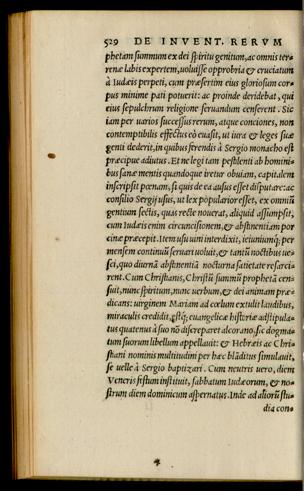 529 DE INVENT. RERVM
phetam summum ex dei spiritu genitum, ac omnis ter-
renæ labis expertem, voluisse opprobria & cruciatum
à Iudæis perpeti, cum præsertim eius gloriosum cor-
pus minime pati potuerit: ac proinde deridebat, qui
eius sepulchrum religione seruandum censerent. Sic
iam per varios successus rerum, atque conciones, non
contemptibilis effectus eò euasit, ut iura & leges suæ
genti dederit, in quibus ferendis à Sergio monacho est
præcipue adiutus. Et ne legi tam pestilenti ab homini-
bus sanæ mentis quandoque iretur obuiam, capitalem
inscripsit pœnam, si quis de ea ausus esset disputare: ac
consilio Sergij usus, ut lex popularior esset, ex omniũ
gentium sectis, quas recte nouerat, aliquid assumpsit,
cum Iudæis enim circuncisionem, & abstinentiam por
cinæ præcepit. Item usu uini interdixit, ieiuniumq; per
mensem continuũ seruari uoluit, & tantũ noctibus ue-
sci, quo diurnã abstinentiã nocturna satietate resarci-
rent. Cum Christianis, Christũ summũ prophetã cen-
suit, nunc spiritum, nunc uerbum, & dei animam præ-
dicans: uirginem Mariam ad cœlum extulit laudibus,
miraculis credidit, historiæ adstipula-
tus quatenus à suo nõ discreparet alcorano, sic dogma-
tum suorum libellum appellauit: & Hebræis ac Chri-
stiani nominis multitudini per hæc blãditus simulauit,
se uelle à Sergio baptizari. Cum neutris uero, diem
Veneris festum instituit, sabbatum Iudæorum, & no-
strum diem dominicum aspernatus. Inde ad aliorũ stu-
dia con-